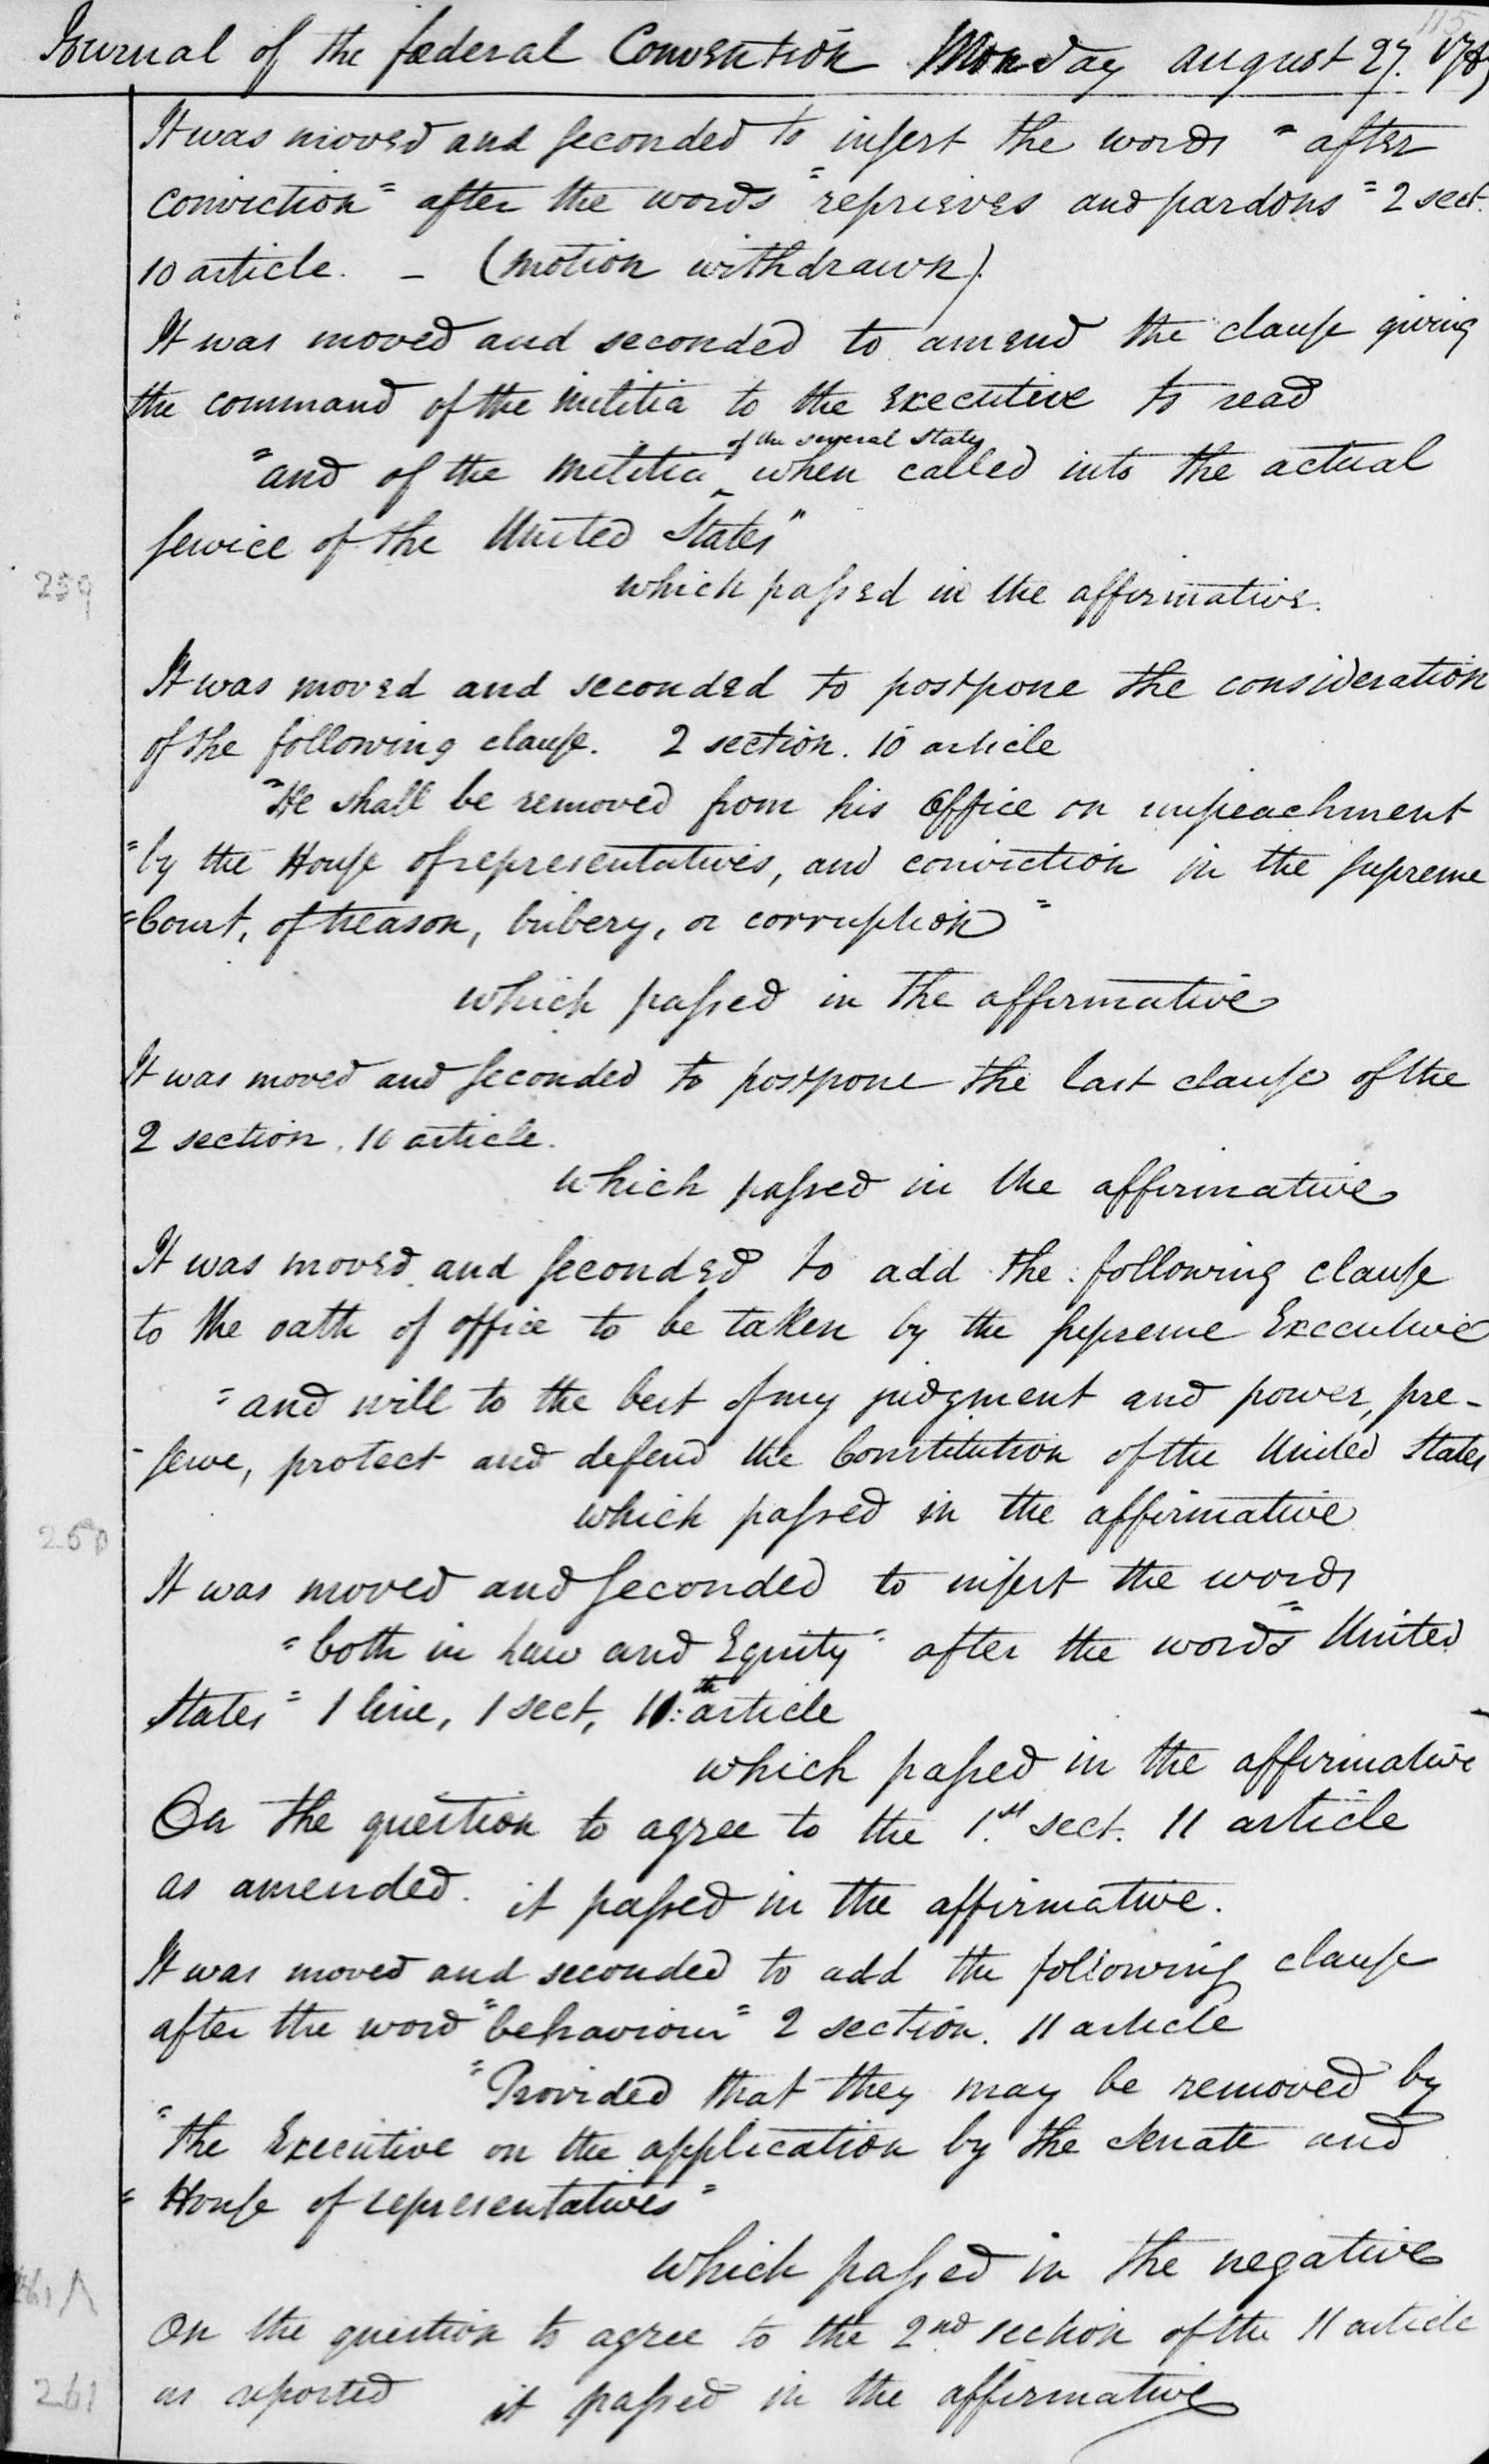 115
Journal of the fæderal Convention Monday august 27. 1787
It was moved and seconded to insert the words "after
conviction" after the words "reprieves and pardons" 2 sect.
10 article. — (motion withdrawn).
It was moved and seconded to amend the clause giving
the command of the militia to the Executive to read
of the several States
"and of the militia ‸ when called into the actual
service of the United States"
259
which passed in the affirmative.
It was moved and seconded to postpone the consideration
of the following clause. 2 section. 10 article
"He shall be removed from his Office on impeachment
"by the House of representatives, and conviction in the supreme
"Court, of treason, bribery, or corruption"
which passed in the affirmative
It was moved and seconded to postpone the last clause of the
2 section. 10 article.
which passed in the affirmative
It was moved and seconded to add the following clause
to the oath of office to be taken by the supreme Executive
"and will to the best of my judgment and power, pre-
-serve, protect and defend the Constitution of the United States
which passed in the affirmative
260
It was moved and seconded to insert the words
"both in Law and Equity" after the words "United
States" 1 line, 1 sect, 11th article
which passed in the affirmative
On the question to agree to the 1st sect. 11 article
as amended. it passed in the affirmative.
It was moved and seconded to add the following clause
after the word "behaviour" 2 section. 11 article
"Provided that they may be removed by
"the Executive on the application by the Senate and
"House of representatives"
which passed in the negative
On the question to agree to the 2nd section of the 11 article
261
as reported it passed in the affirmative